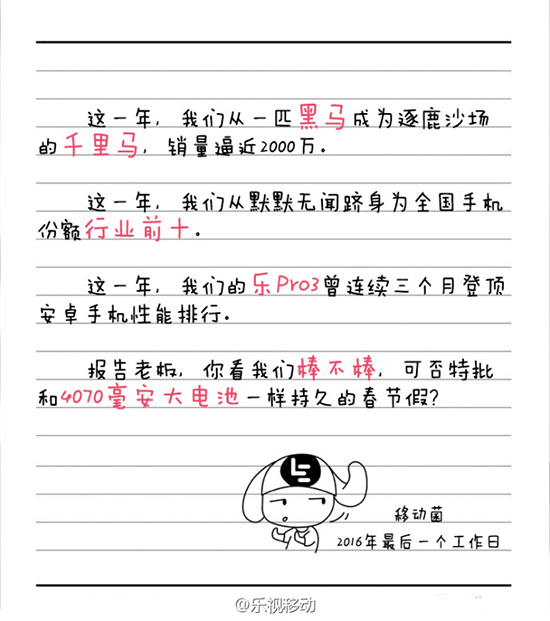 这一年，我们从一匹黑马成为逐鹿沙场
的千里马，销量逼近2000万。
这一年，我们从默默无闻跻身为全国手机
份额行业前十。
这一年，我们的乐Pro3曾连续三个月登顶
安卓手机性能排行。
报告老板，你看我们棒不棒，可否特批
和4070毫安大电池一样持久的春节假？
移动菌
2016年最后一个工作日
@乐视移动